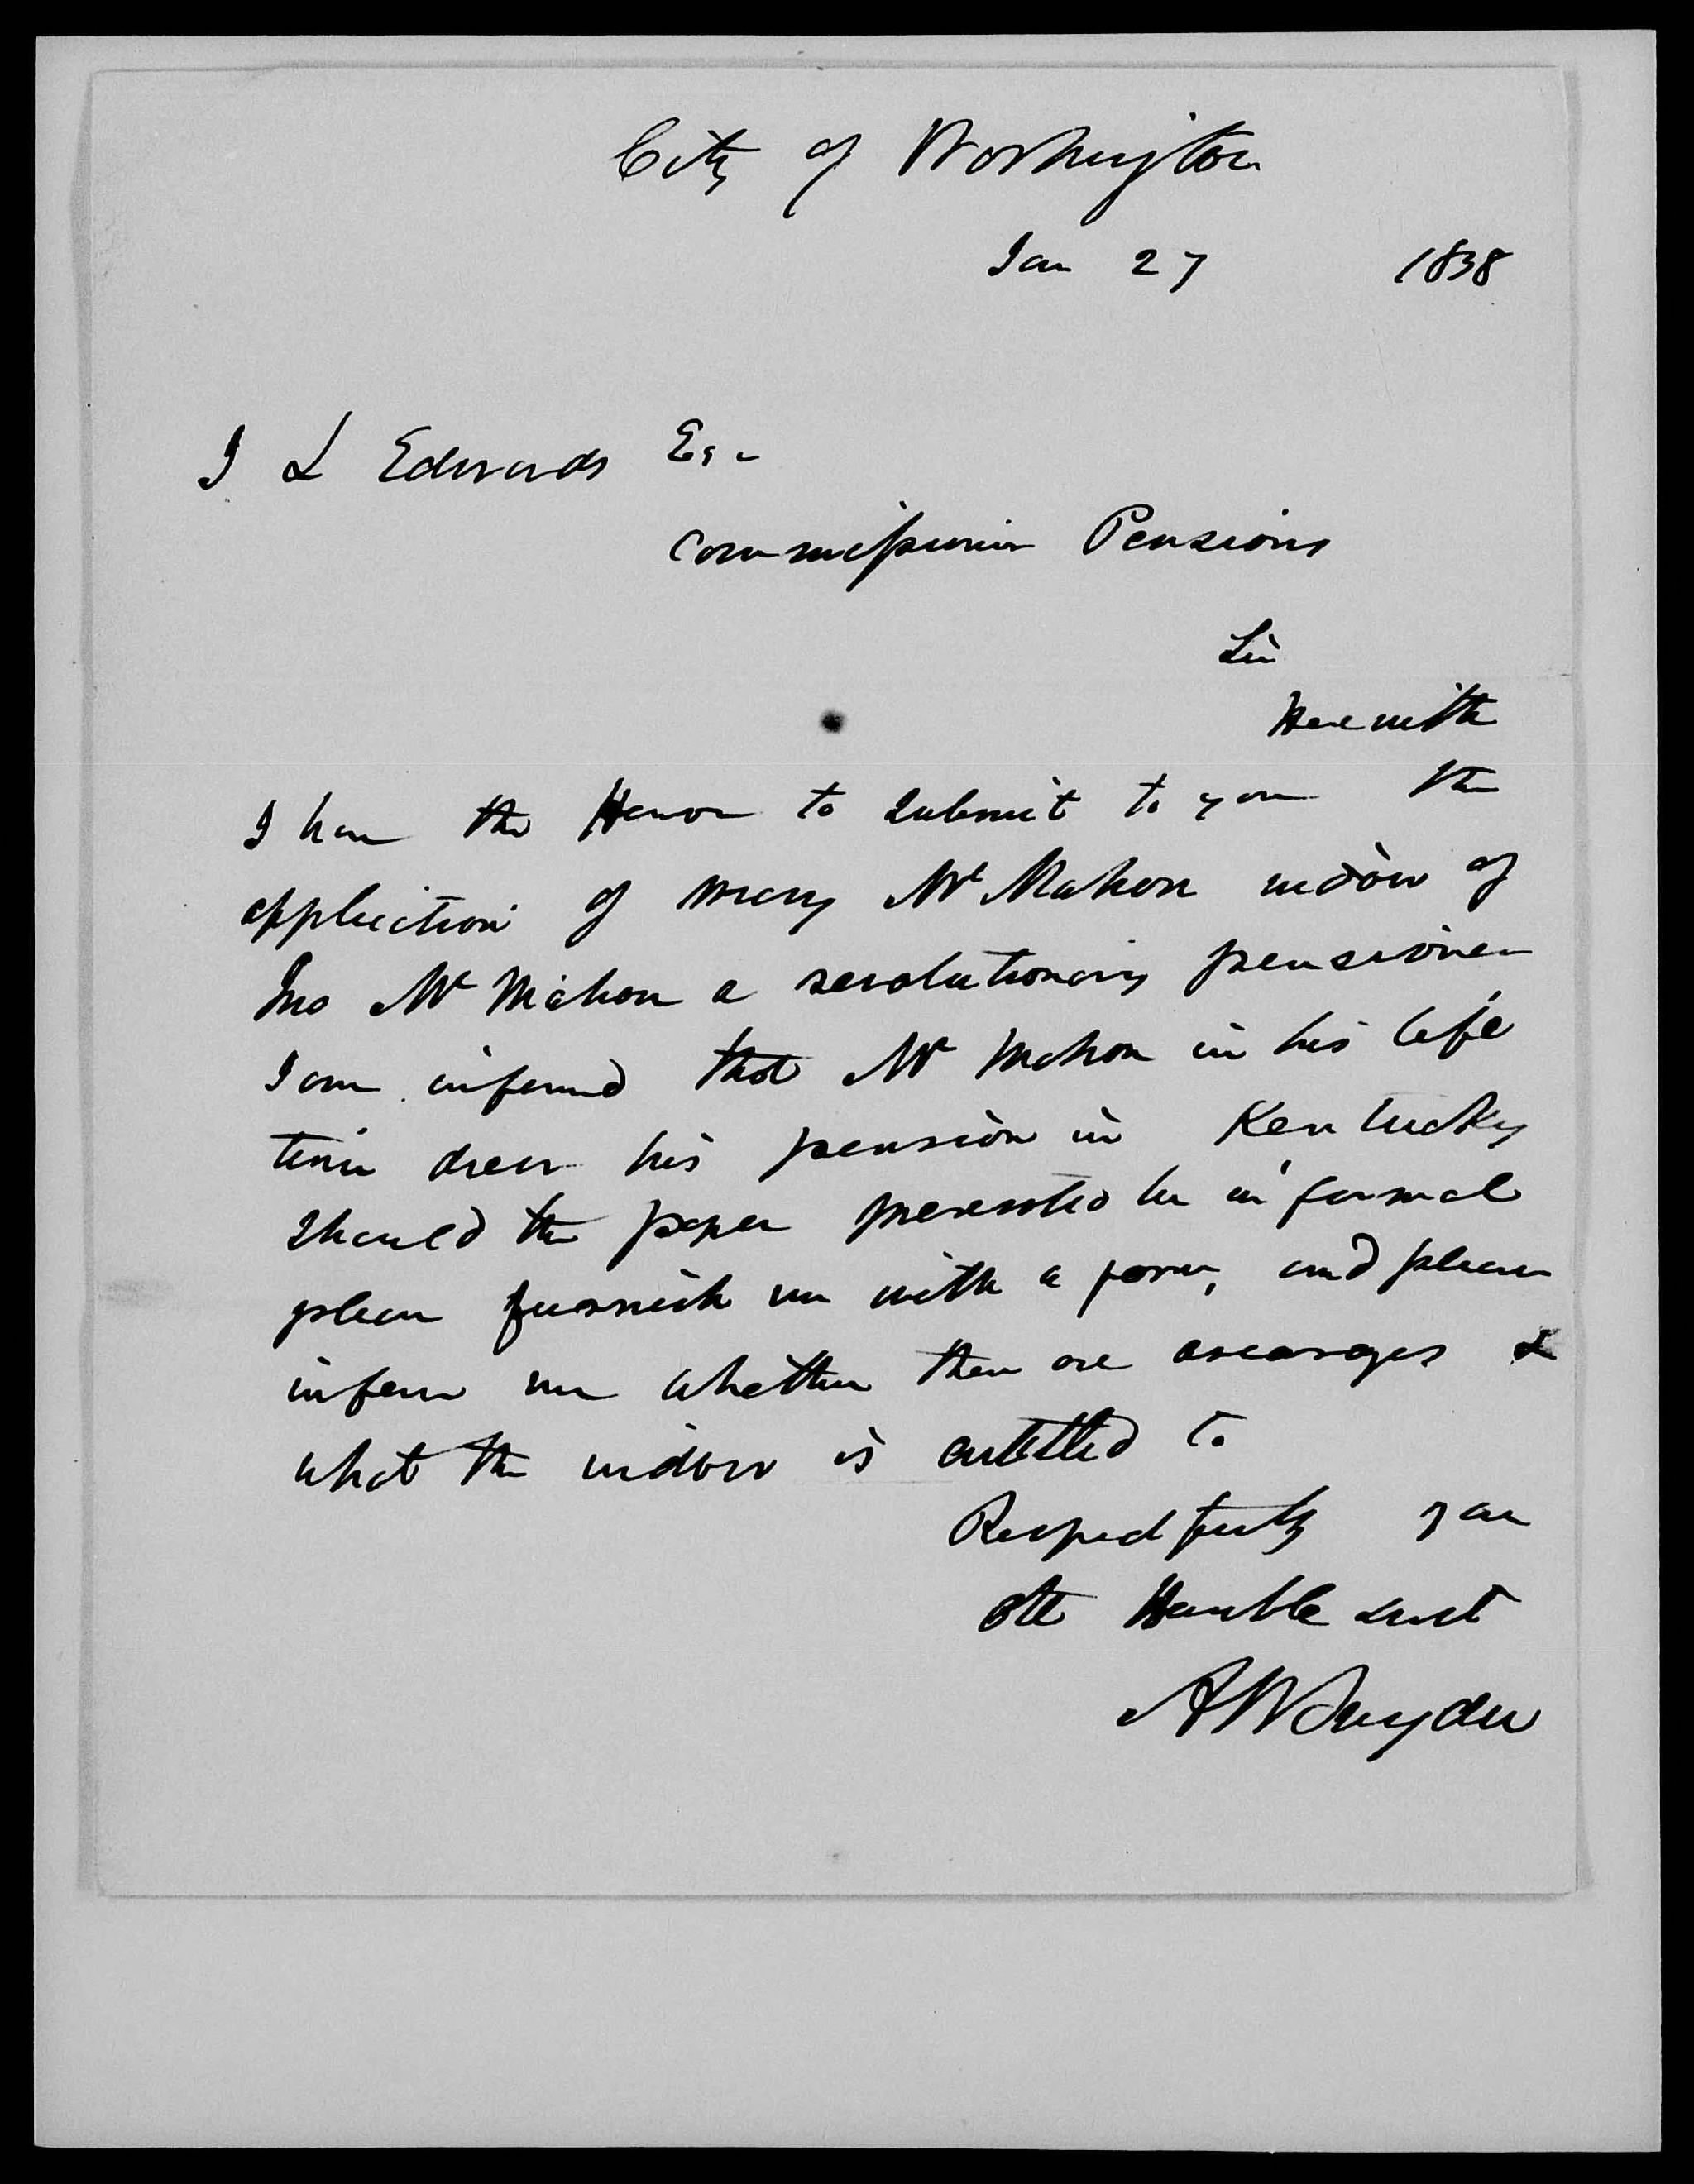 City of Washington
Jan 27 1838
J L Edwards Esq
Commissioner Pensions
Sir
Herewith
I have the Honor to submit to you the
application of Mary Mc Mahon widow of
Jno Mc Mahon a revolutionary pensioner
I am informed that Mc Mahon in his life
time drew his pension in Kentucky
should the paper presented be informal
please furnish me with a form, and please
inform me whether there are arearages &
what the widow is entitled to
Respectfully your
obt Humble Servt
A W Snyder